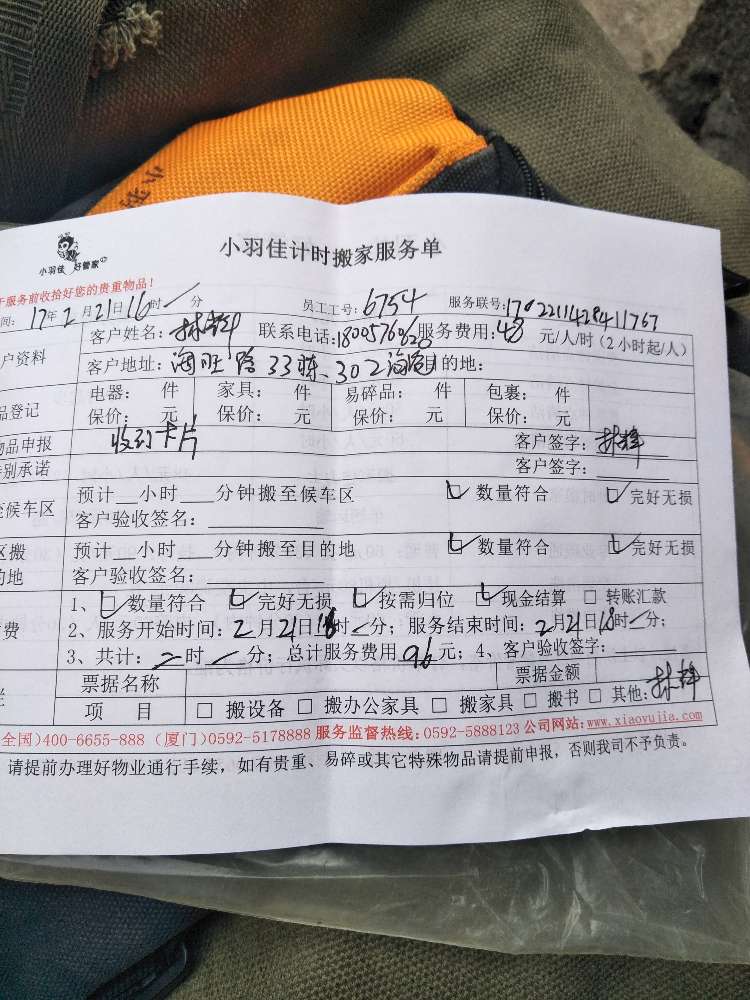 小羽佳 好管家
小羽佳计时搬家服务单
于服务前收拾好您的贵重物品！
间：17年2月21日16时/分 员工工号：6754 服务联号：
户资料
客户姓名：林 联系电话： 服务费用：48元/人/时（2小时起/人）
客户地址：海旺路33栋、302 目的地：
品登记
电器： 件 家具： 件 易碎品： 件 包裹： 件
保价： 元 保价： 元 保价： 元 保价： 元
物品申报 收到卡片 客户签字：林
特别承诺 客户签字：
至候车区
预计__小时___分钟搬至候车区 数量符合 完好无损
客户验收签名：
区搬
的地
预计__小时___分钟搬至目的地 数量符合 完好无损
客户验收签名：
费
1、数量符合 完好无损 按需归位 现金结算 □ 转账汇款
2、服务开始时间：2月21日16时/分；服务结束时间：2月21日18时/分；
3、共计：2时/分；总计服务费用96元；4、客户验收签字：
票据名称 票据金额
项 目 □ 搬设备 □ 搬办公家具 □ 搬家具 □ 搬书 □ 其他：林
全国)400-6655-888 (厦门)0592-5178888 服务监督热线：0592-5888123 公司网站：www.xiaoyujia.com
请提前办理好物业通行手续，如有贵重、易碎或其它特殊物品请提前申报，否则我司不予负责。